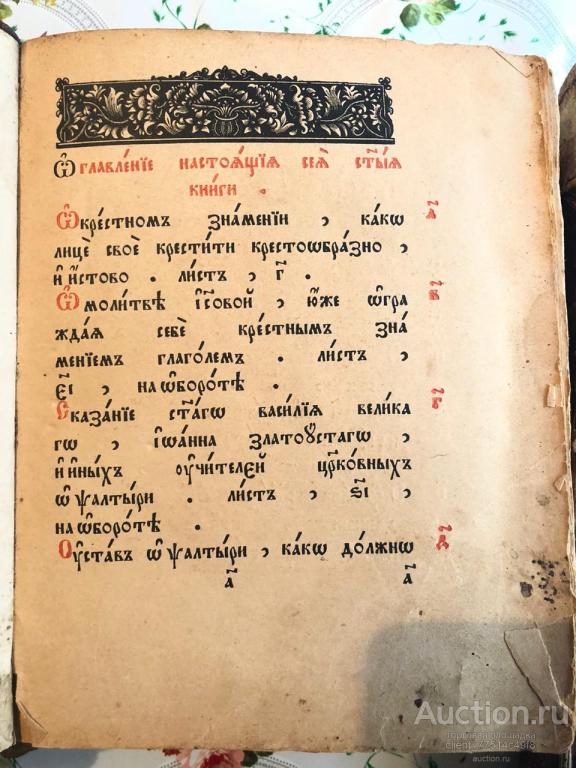 Ѡ҆главле́нїе настоѧ́щїѧ сеѧ̀ ст҃ы́ѧ
кни́ги .
Ѡ҆ кре́стномъ зна́менїи , ка́кѡ а҃
лицѐ своѐ крести́ти крестоѡбра́зно ,
и҆ и҆́стово . ли́стъ , г҃ .
Ѡ҆ моли́твѣ і҆с҃овой , ю҆́же ѡ҆гра в҃
жда́ѧ себѐ кре́стнымъ зна́
менїемъ глаго́лемъ . ли́стъ ,
є҃і , на ѡ҆боро́тѣ .
Сказа́нїе ст҃а́гѡ васи́лїѧ вели́ка г҃
гѡ , і҆ѡа́нна златоꙋ́стагѡ ,
и҆ и҆ны́хъ ᲂу҆чи́телей цр҃ко́вныхъ
ѡ҆ ѱалты́ри . ли́стъ , ѕ҃і ,
на ѡ҆боро́тѣ .
Оу҆ста́въ ѡ҆ ѱалты́ри , ка́кѡ до́лжнѡ д҃
а҃ а҃
Auction.ru
торговая площадка
auction.ru